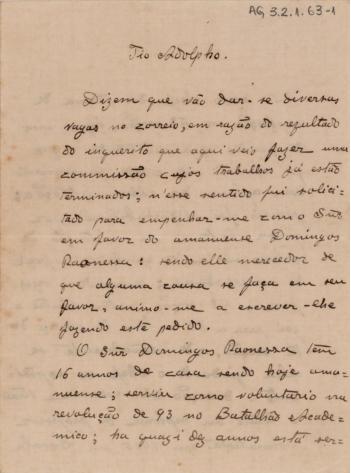 AG 3.2.1.63-1
Tio Adolpho.
Dizem que vão dar-se diversas
vagas no correio, em razão do rezultado
do inquerito que aqui veio fazer uma
commissão cujos trabalhos já estão
terminados; n'esse sentido fui solici-
tado para empenhar-me com o Snr
em favor do amanuense Domingos
Paonessa: sendo elle merecedor de
que alguma cousa se faça em seu
favor, animo-me a escrever-lhe
fazendo este pedido.
O Snr Domingos Paonessa têm
16 annos de casa sendo hoje ama-
nuense; serviu como voluntario na
revolução de 93 no Batalhão Acade-
mico; ha quazi dez annos está ser-